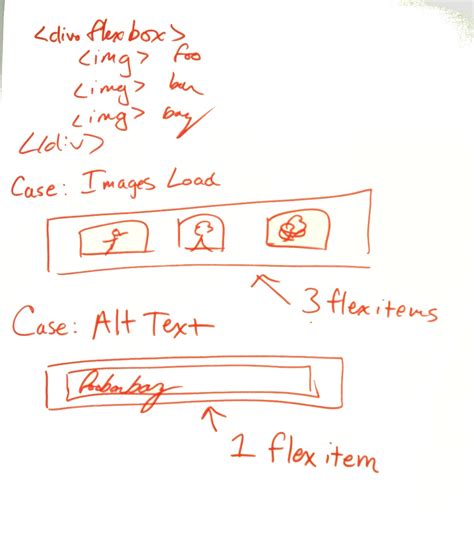 <div flexbox>
<img> foo
<img> bar
<img> baz
</div>
Case: Images Load
3 flex items
Case: Alt Text
foobarbaz
1 flex item